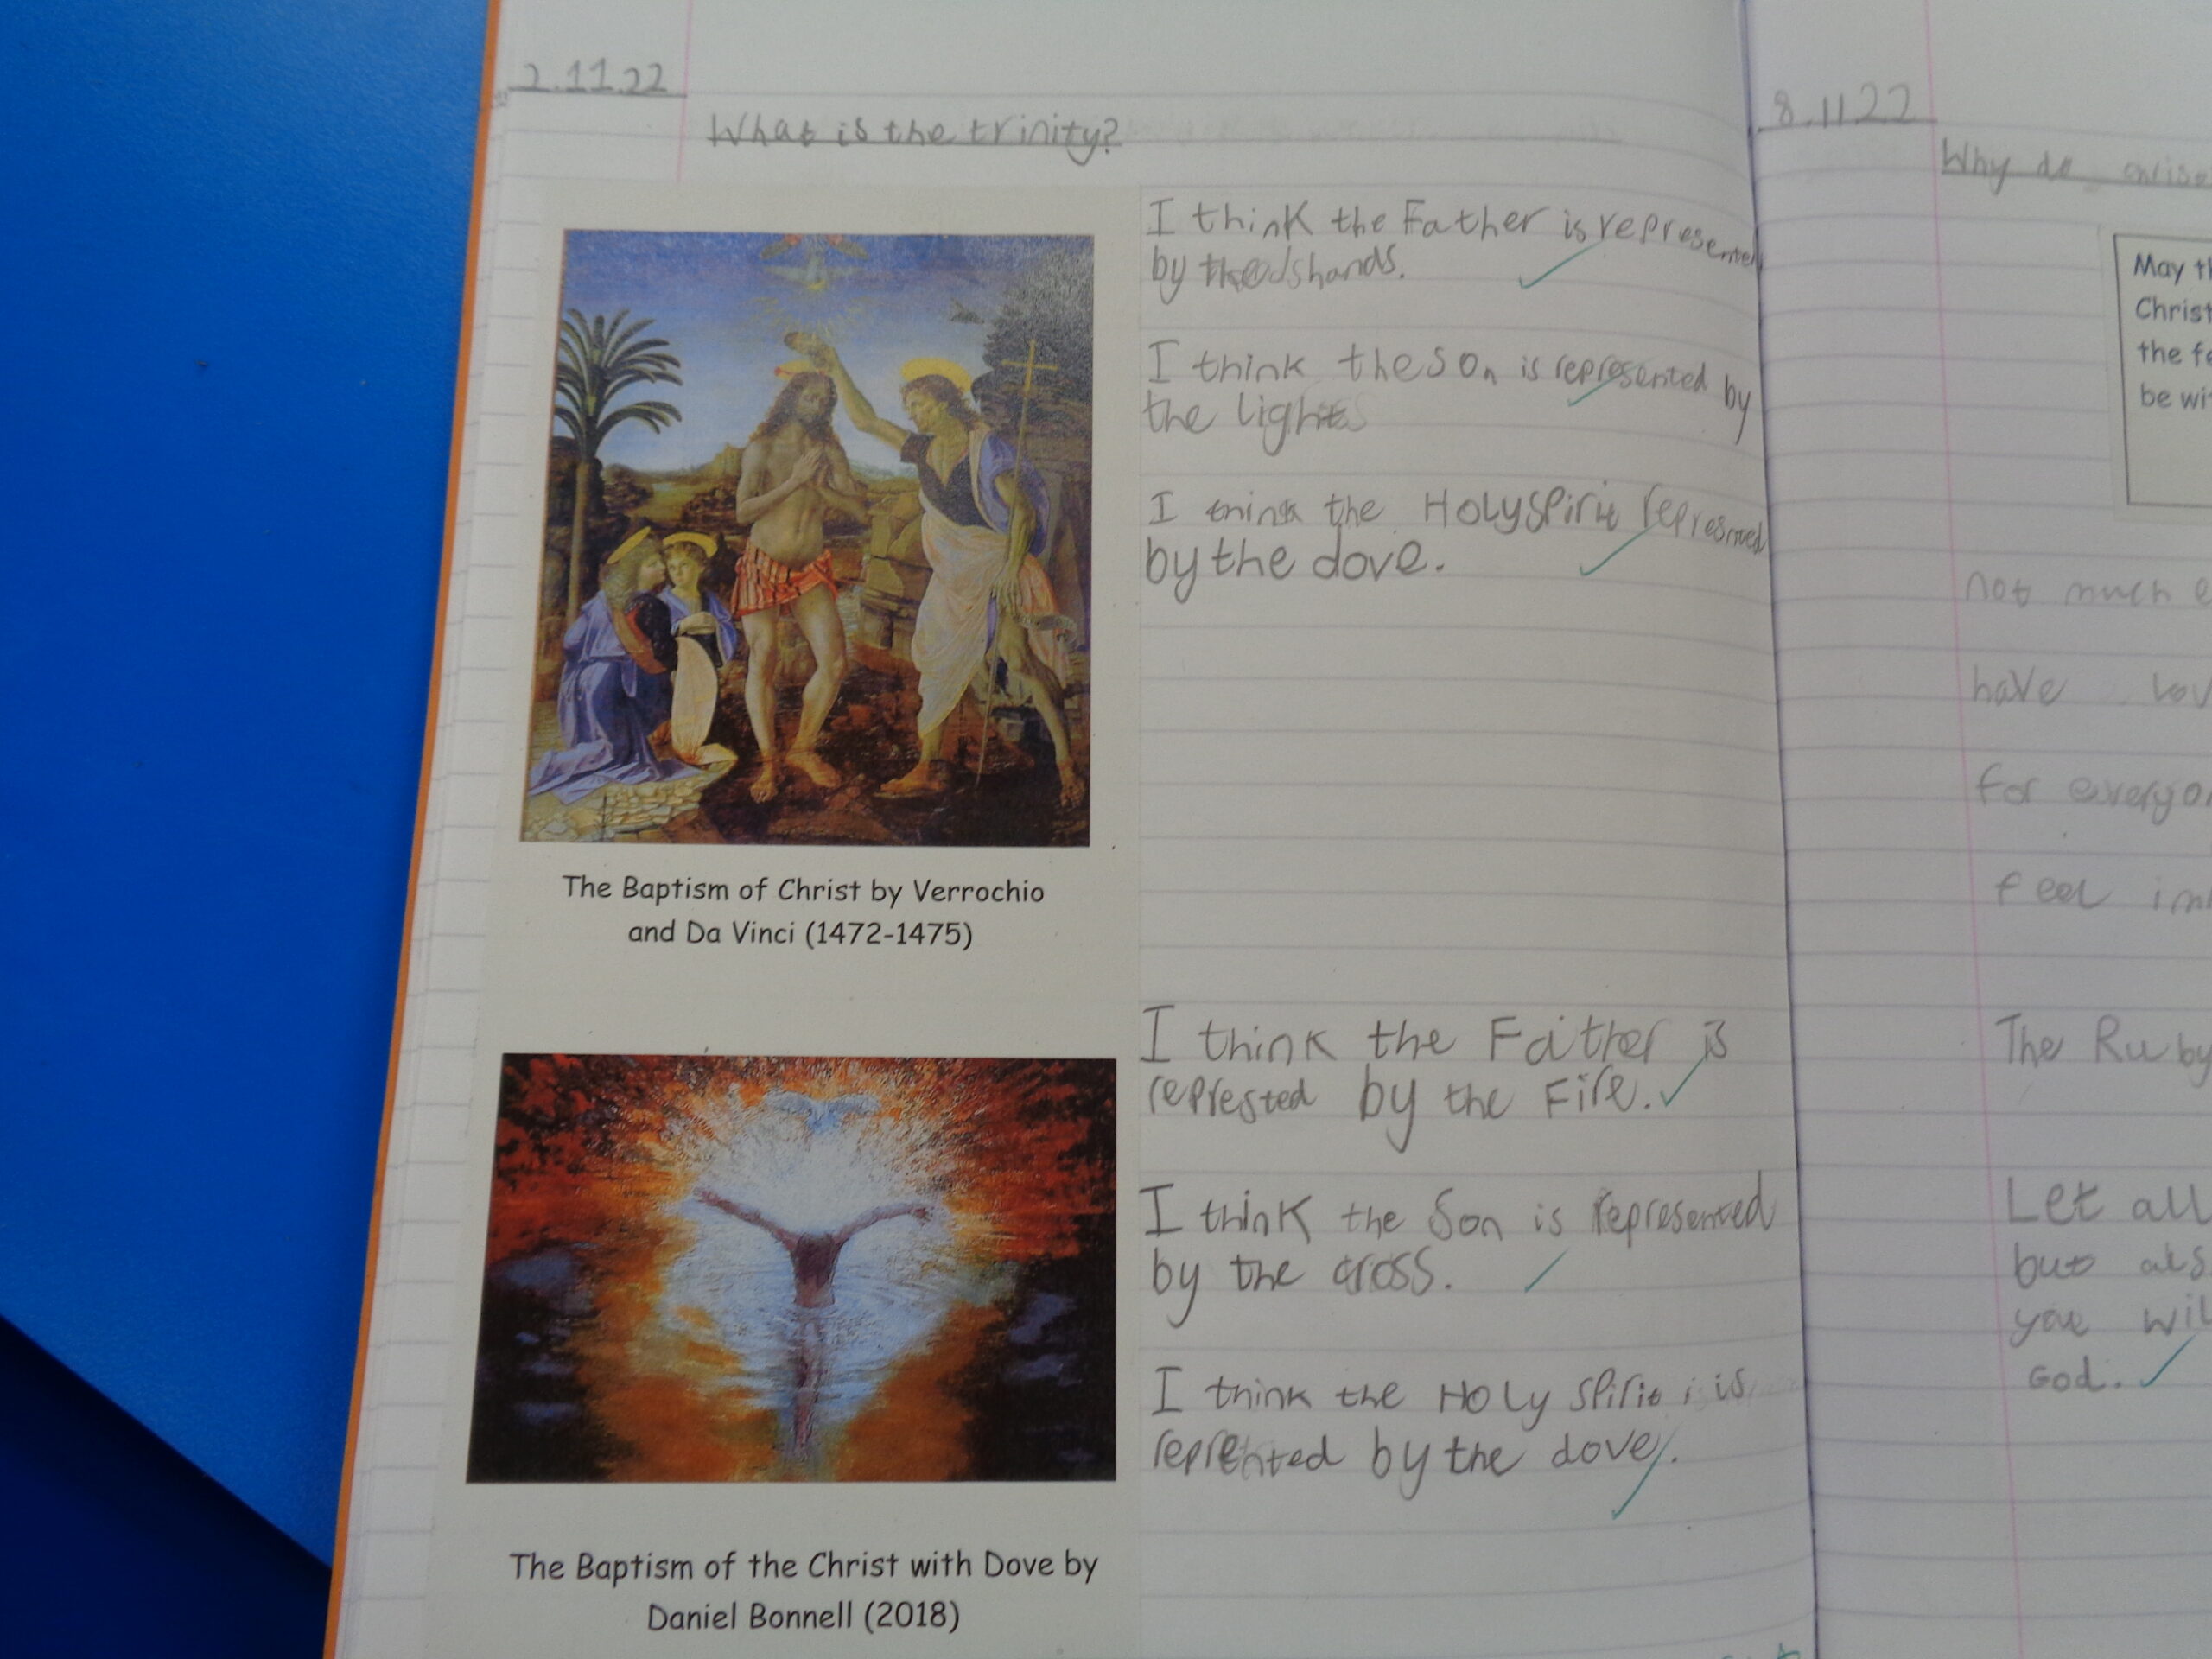 2.11.22
What is the trinity?
I think the Father is represented
by hands.
I think the Son is represented by
the light
I think the Holy Spirit represnted
by the dove.
The Baptism of Christ by Verrochio
and Da Vinci (1472-1475)
I think the Father is
represted by the Fire.
I think the Son is represented
by the cross.
I think the Holy Spirit is
reprented by the dove.
The Baptism of the Christ with Dove by
Daniel Bonnell (2018)
8.11 22
Why do
May th
Christ
the fe
be wit
not much e
have lov
for everyo
feel im
The Ruby
Let all
but als
you wil
God.